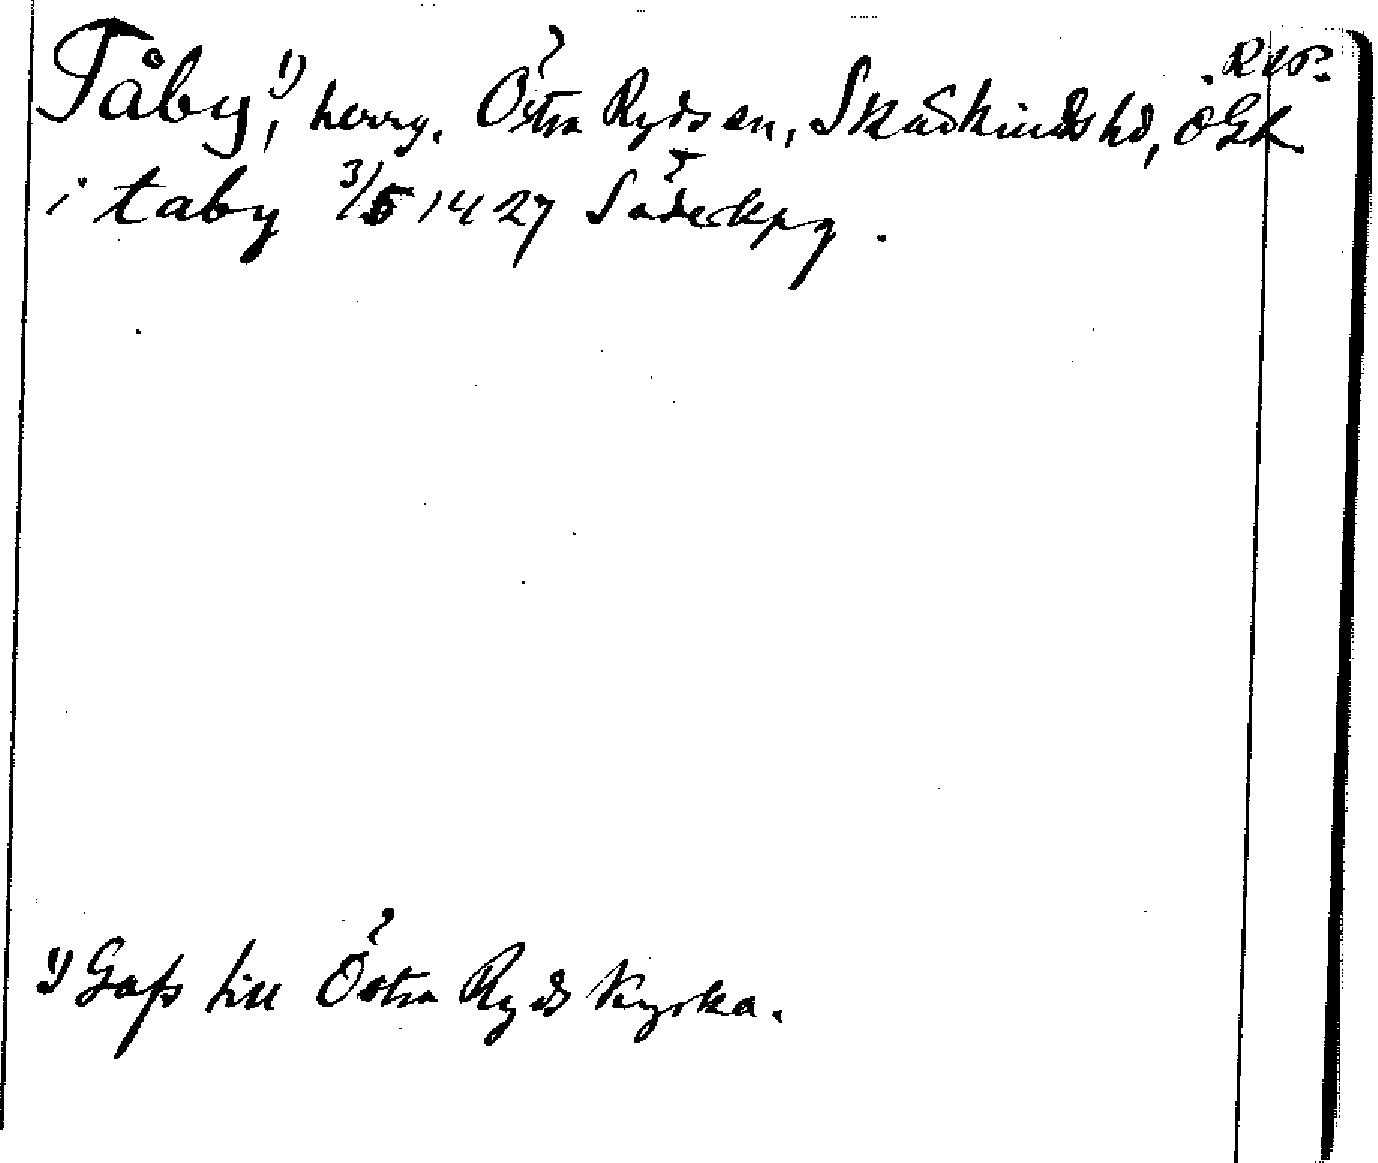 Tåby,¹⁾ herrg. Östra Ryds sn, Skärkinds hd, ÖGL
i taby 3/5 1427 Söderkpg.
¹⁾ Gafs till Östra Ryds kyrka.